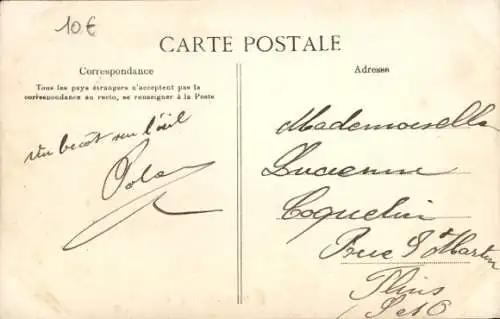 10€
CARTE POSTALE
Correspondance
Tous les pays étrangers n'acceptent pas la
correspondance au recto, se renseigner à la Poste
Un becot sur l'œil
Adresse
Mademoiselle
Lucienne
Coquelin
Rue St Martin
Flins
S et O